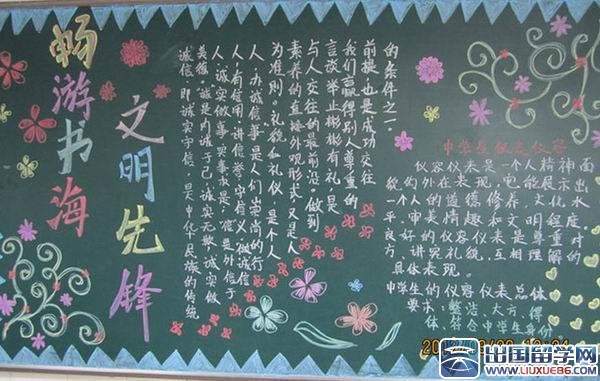 畅游书海
文明先锋
诚信,即诚实守信,是中华民族的传统
美德。诚是内诚于己,诚实无欺,诚实做
人,诚实做事,实事求是;信是外信于
人,有信用,讲信誉,守信义。做诚信
人,办诚信事,是人们崇尚的行
为准则。礼貌和礼仪,是个人
素养的直接外观形式,又是人
与人交往的最前沿。做到
言谈举止彬彬有礼,是
我们赢得别人尊重的
前提也是成功交往
的条件之一。
中学生仪表仪容
仪容仪表是一个人精神面
貌的外在表现,它能展示出
一个人的道德修养、文化水
平、审美情趣和文明程度。
良好的仪容仪表是尊重对
方、讲究礼貌,互相理解的
具体表现。
中学生的仪容仪表总体
要求:整洁、大方、得
体、符合中学生身份
出国留学网
WWW.LIUXUE86.COM